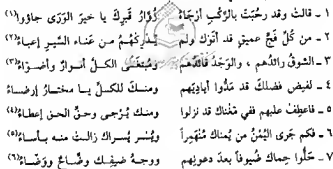 ١ - قالت وقد رحّبَتْ بالرَّكْبِ أرجاءُ زُوّارُ قبرِكَ يا خيرَ الوَرَى جاؤوا (١)
٢ - من كُلِّ فَجٍّ عميقٍ قد أتَوْك ولم يُدركْهُمُ من عَناءِ السَّيرِ إعياءُ (٢)
٣ - الشوقُ رائدُهم ، والوَجدُ قائدُهم ومُبتَغَى الكلِّ أنوارٌ وأضواءُ (٣)
٤ - لفيض فضلك قد مَدُّوا أياديَهم ومنكَ للكلِّ يا مختارُ إرضاءُ
٥ - فاعطِفْ عليهم ففي مَغْناكَ قد نزلوا ومنك يُرْجى وحقِّ الحقِّ إعطاءُ (٤)
٦ - فكم جَرى اليُمْنُ من يُمناكَ مُنْهَمِراً ويُسْرُ يُسراك زالتْ منه بأساءُ (٥)
٧ - حَلُّوا حِماك ضُيوفاً بعدَ دعوتِهم ووجهُ ضيفِك وضّاحٌ ووَضّاءُ (٦)